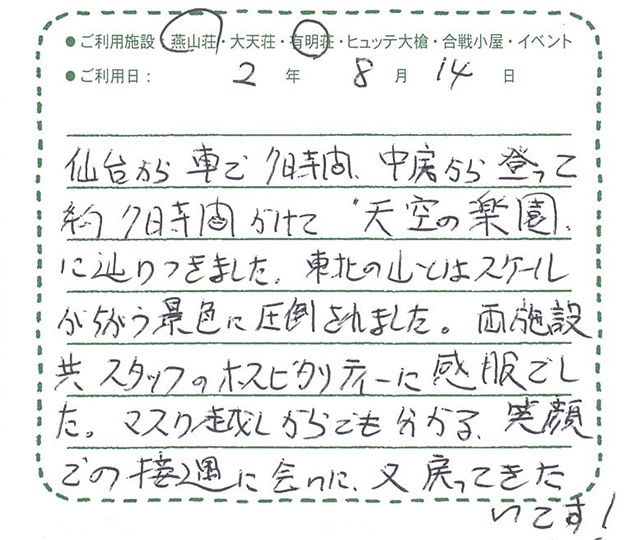 ●ご利用施設：燕山荘・大天荘・有明荘・ヒュッテ大槍・合戦小屋・イベント
●ご利用日： 2 年 8 月 14 日
仙台から車で 7時間、中房から登って
約 7時間かけて “天空の楽園、
に辿りつきました。東北の山とはスケール
がちがう景色に圧倒されました。両施設
共スタッフのホスピタリティーに感服でし
た。マスク越しからでも分かる、笑顔
での接遇に会いに、又戻ってきた
いです！